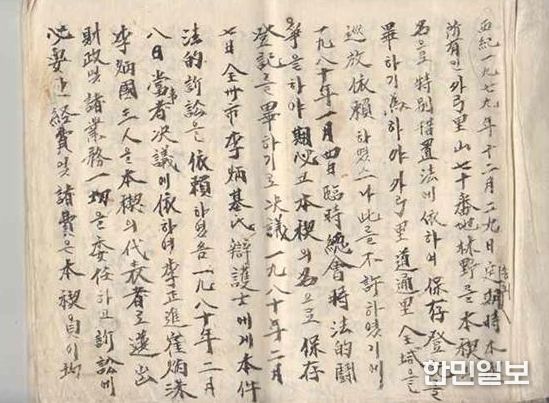 西紀一九七九年十二月二九日 定期總會時 本
所有인 外弓里山七十番地林野를 本楔
名으로 特別措置法에 依하여 保存登
畢하기 爲하야 外弓里 道通里 全域을
巡放依賴하였으나 此를 不許하였기에
一九八十年一月四日 臨時總會時 法的鬪
爭을하야 期必고 本楔의 名으로 保存
登記를 畢하기로 決議 一九八十年二月
七日 全州市 李炳基氏 辯護士에게 本件
法的訴訟을 依賴하였음 一九八十年二月
八日 當事者決議에 依하여 李正進 崔炳洙
李炳國 三人을 本楔의 代表者로 選出
財政및 諸業務一切을 委任하고 訴訟에
必要한 経費및 諸費은 本楔員이
한민일보